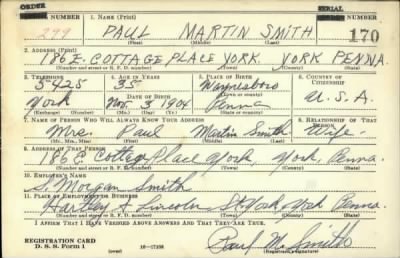 ORDER SERIAL
NUMBER 1. Name (Print) NUMBER
299 PAUL MARTIN SMITH 170
(First) (Middle) (Last)
2. Address (Print)
186 E. COTTAGE PLACE YORK. YORK PENNA.
(Number and street or R. F. D. number) (Town) (County) (State)
3. Telephone 4. Age in Years 5. Place of Birth 6. Country of Citizenship
5425 35 Waynesboro
Date of Birth
York Nov. 3 1904 Penna U.S.A.
(Exchange) (Number) (Mo.) (Day) (Yr.) (State or country)
7. Name of Person Who Will Always Know Your Address 8. Relationship of That Person
Mrs. Paul Martin Smith Wife.
(Mr., Mrs., Miss) (First) (Middle) (Last)
9. Address of That Person
186 E Cottage Place York York, Penna.
(Number and street or R. F. D. number) (Town) (County) (State)
10. Employer's Name
S. Morgan Smith
11. Place of Employment or Business
Hartley & Lincoln St. York York Penna.
(Number and street or R. F. D. number) (Town) (County) (State)
I Affirm That I Have Verified Above Answers and That They Are True.
Registration Card
D. S. S. Form 1 (over) 16—17105 Paul M. Smith
(Registrant's signature)